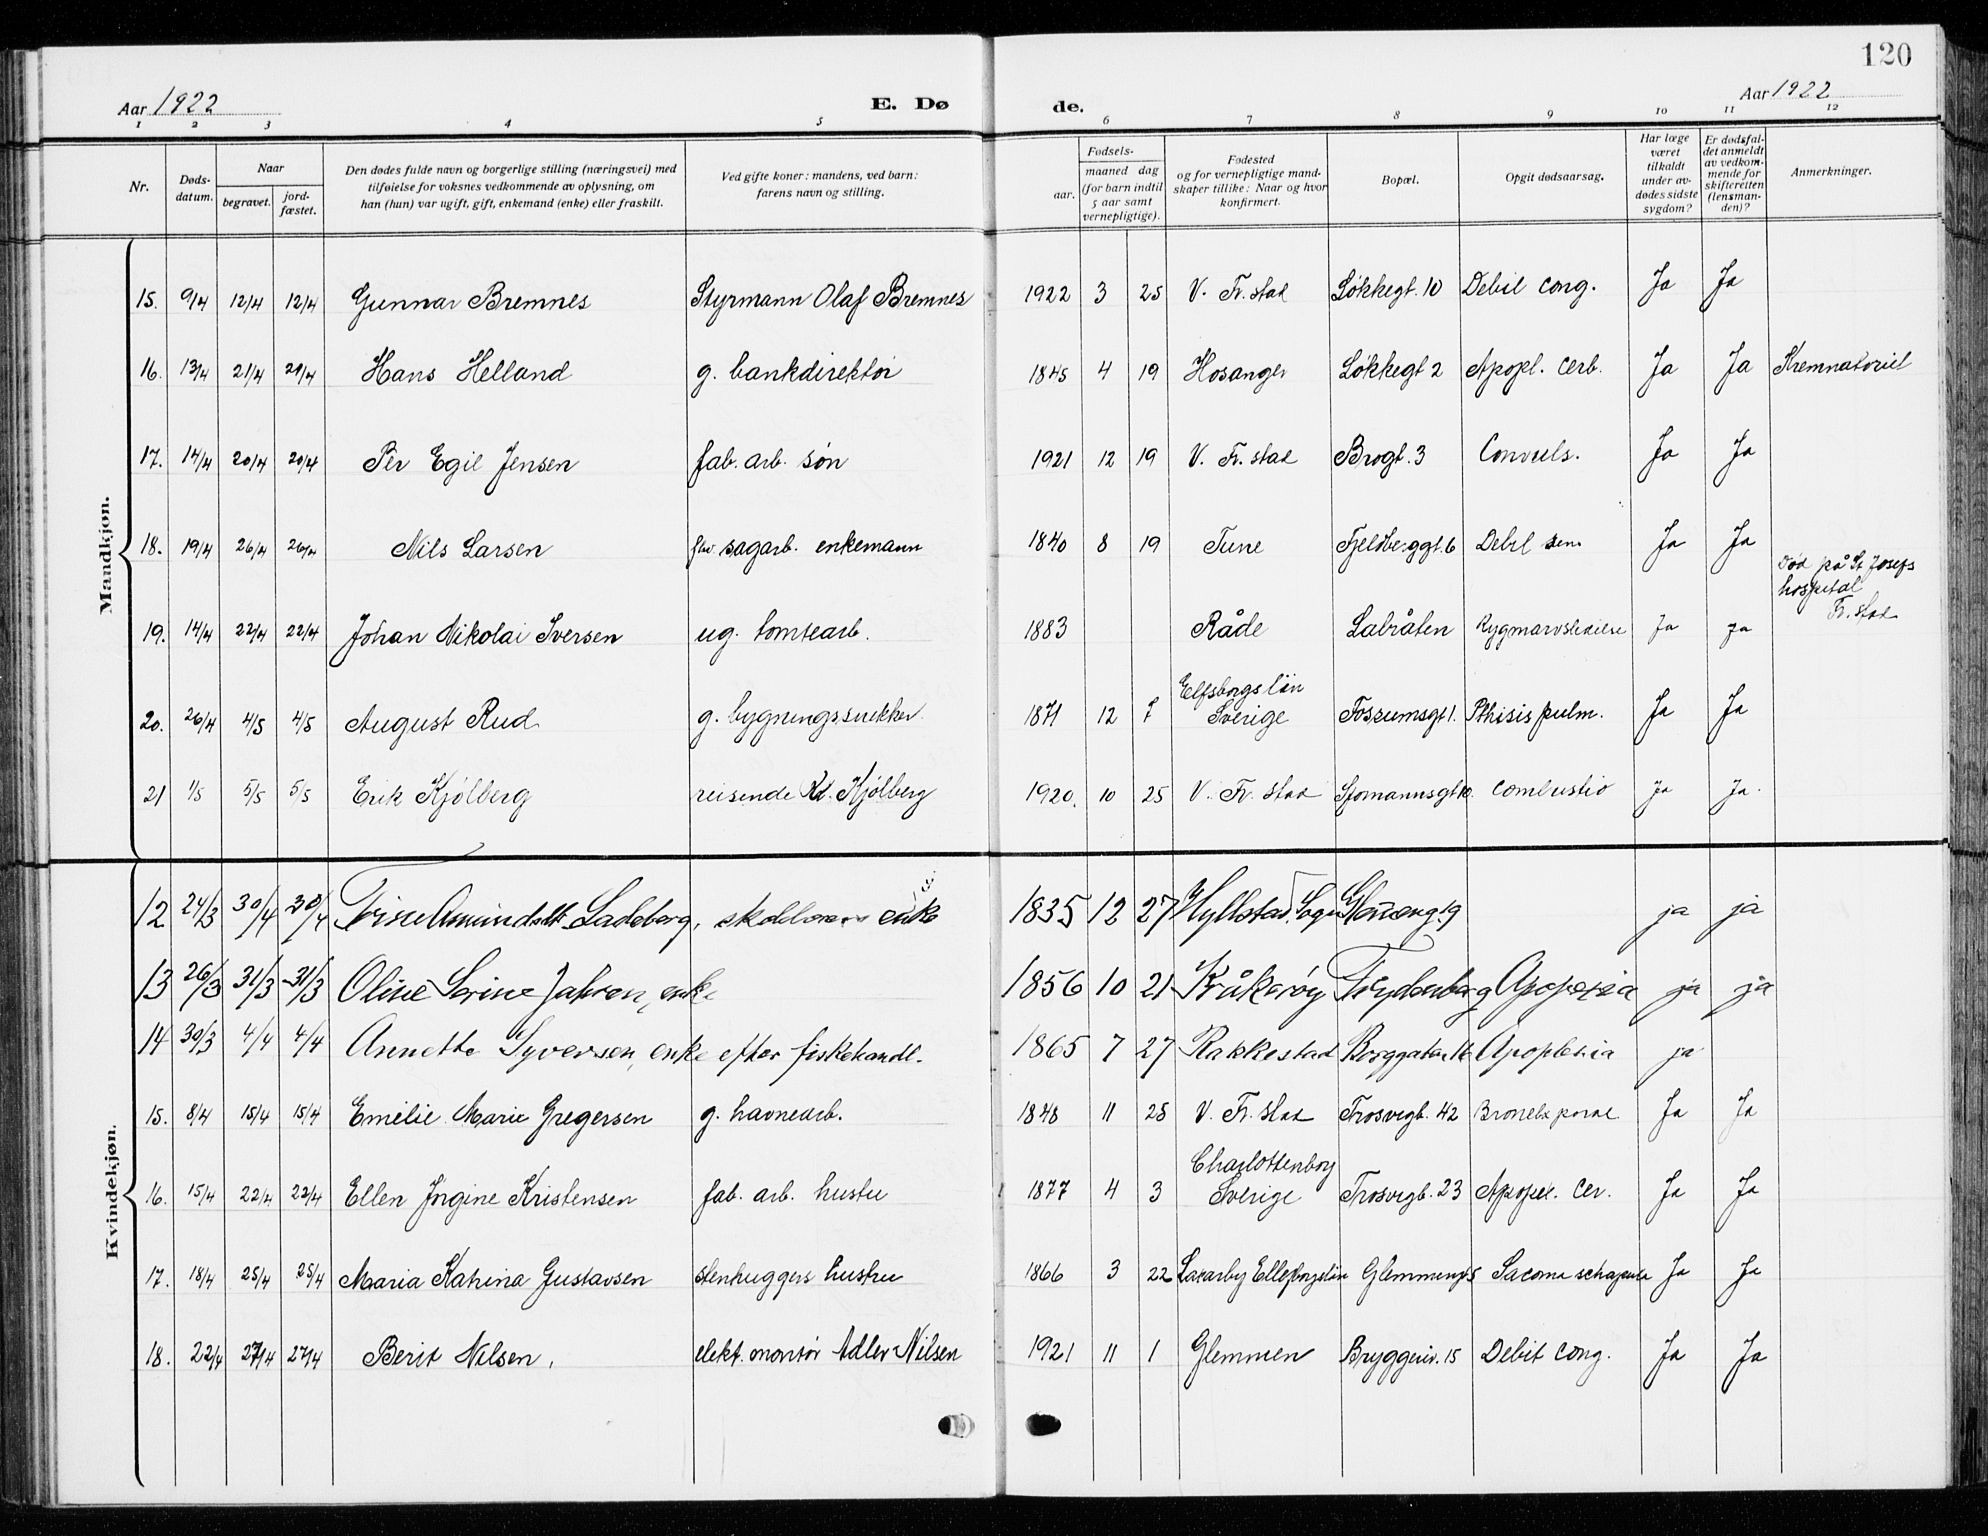 120
Aar 1922
E. Dø
de.
Aar 1922
1 2 3 4 5 6 7 8 9 10 11 12
Nr.
Døds-
datum.
Naar
begravet.
jord-
fæstet.
Den dødes fulde navn og borgerlige stilling (næringsvei) med
tilføielse for voksnes vedkommende av oplysning, om
han (hun) var ugift, gift, enkemand (enke) eller fraskilt.
Ved gifte koner: mandens, ved barn:
farens navn og stilling.
Fødsels-
aar.
maaned dag
(for barn indtil
5 aar samt
vernepligtige).
Fødested
og for vernepligtige mand-
skaper tillike: Naar og hvor
konfirmert.
Bopæl.
Opgit dødsaarsag.
Har læge
været
tilkaldt
under av-
dødes sidste
sygdom?
Er dødsfal-
det anmeldt
av vedkom-
mende for
skifteretten
(lensman-
den)?
Anmerkninger.
Mandkjøn.
15. 9/4 12/4 12/4 Gunnar Bremnes Styrmann Olaf Bremnes 1922 3 25 V. Fr.stad Løkkegt. 10 Debil cong. Ja Ja
16. 13/4 21/4 21/4 Hans Helland g. bankdirektør 1845 4 19 Hosanger Løkkegt 2 Apopl. cerb. Ja Ja Kremnatoriet
17. 14/4 20/4 20/4 Per Egil Jensen fab. arb. søn 1921 12 19 V. Fr.stad Brogt. 3 Convuls. Ja Ja
18. 19/4 26/4 26/4 Nils Larsen fhv. sagarb. enkemann 1840 8 19 Tune Fjeldberggt. 6 Debil sen. Ja Ja
Død på St Josefs
hospital
Fr. stad
19. 14/4 22/4 22/4 Johan Nikolai Iversen ug. tomtearb. 1883 Råde Labråten Rygmarvslidelse Ja Ja
Elfsborgs län
20. 26/4 4/5 4/5 August Rud g. bygningssnekker 1871 12 7 Sverige Fossumsgt 1. Pthisis pulm. Ja Ja
21 1/5 5/5 5/5 Erik Kjølberg reisende Kr. Kjølberg 1920. 10 25 V. Fr. stad combustio Ja Ja.
Kvindekjøn.
12 24/3 30/4 30/4 Ladeberg, enke 1835 12 27 Hyllstad, Sogn ja ja
13 26/3 31/3 31/3 Oline Serine Jahren, enke 1856 10 21 Kråkerøy Frydenberg Apopexia ja ja
14 30/3 4/4 4/4 Annette Syversen, enke efter fiskehandl. 1865 7 27 Rakkestad Borggaten 16 Apoplexia ja
15. 8/4 15/4 15/4 Emelie Marie Gregersen g. havnearb. 1848 11 28 V. Fr. stad Trosvigb. 42 Ja Ja
Charlottenborg
16. 15/4 22/4 22/4 Ellen Jørgine Kristensen fab. arb. hustru 1877 4 3 Sverige Trosvigb. 23 Apopel. cer. Ja Ja
17. 18/4 25/4 25/4 Maria Katrina Gustavsen stenhuggers hustru 1866 3 22 Sacoma schapula Ja Ja
18. 22/4 27/4 27/4 Berit Nilsen, elekt. montør Adler Nilsen 1921 11 1 Glemmen Bryggeriv. 15 Debit cong. Ja Ja